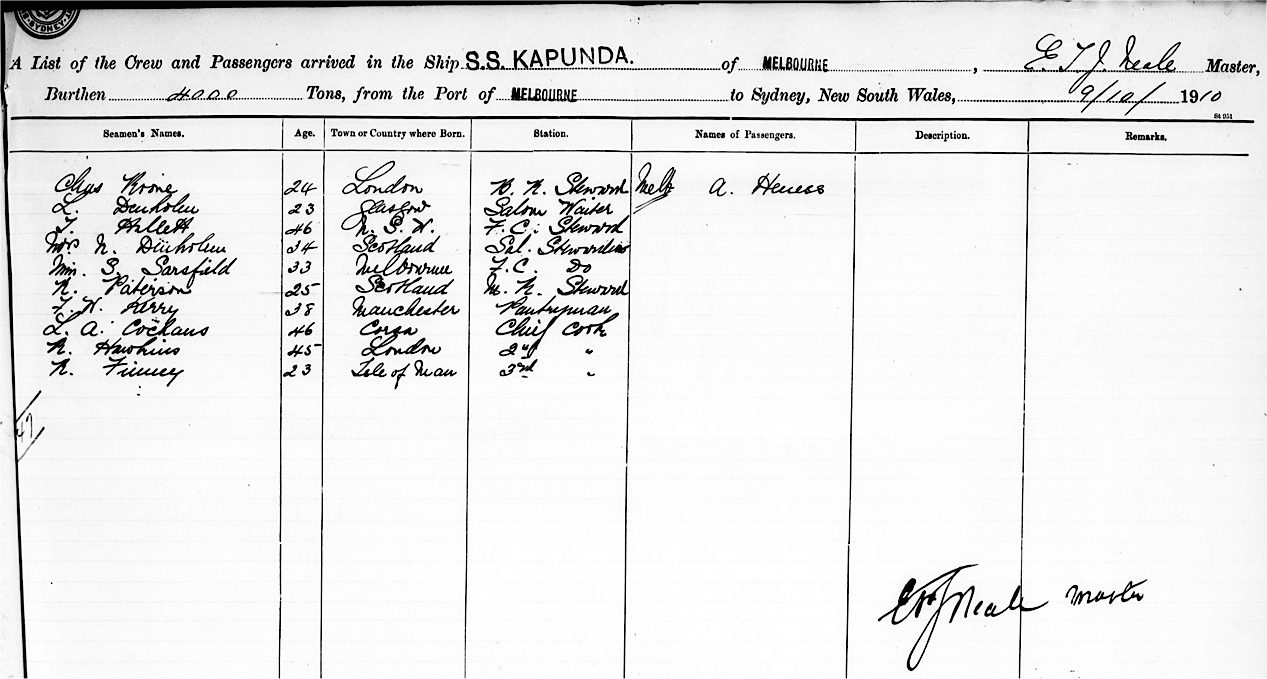 SYDNEY
A List of the Crew and Passengers arrived in the Ship S.S. KAPUNDA. of MELBOURNE, E. T. J. Neale Master,
Burthen 4000 Tons, from the Port of MELBOURNE to Sydney, New South Wales, 9/10/1910
Seamen's Names. Age. Town or Country where Born. Station. Names of Passengers. Description. Remarks.
Chas Krone 24 London B. R. Steward Melb A. Heness
L. Denholm 23 Glasgow Saloon Waiter
T. 46 N. S. W. F. C. Steward
Mrs N. Denholm 34 Scotland Sal. Stewardess
Miss S. Sarsfield 33 Melbourne F. C. Do
R. Paterson 25 Scotland M. R. Steward
F. W. Parry 38 Manchester Pantryman
L. A. 46 Chief Cook
R. Hawkins 45 London 2nd "
R. Finney 23 Isle of Man 3rd "
47
E T J Neale Master